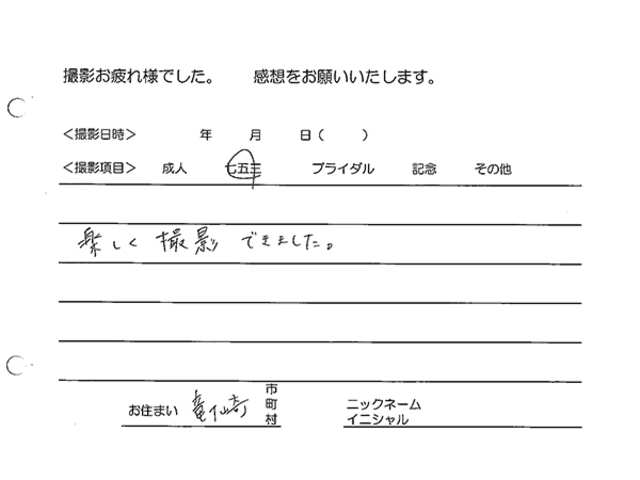 撮影お疲れ様でした。　感想をお願いいたします。
＜撮影日時＞　年　月　日（　）
＜撮影項目＞　成人　七五三　ブライダル　記念　その他
楽しく撮影できました。
お住まい　竜仙奇　市町村　ニックネーム　イニシャル